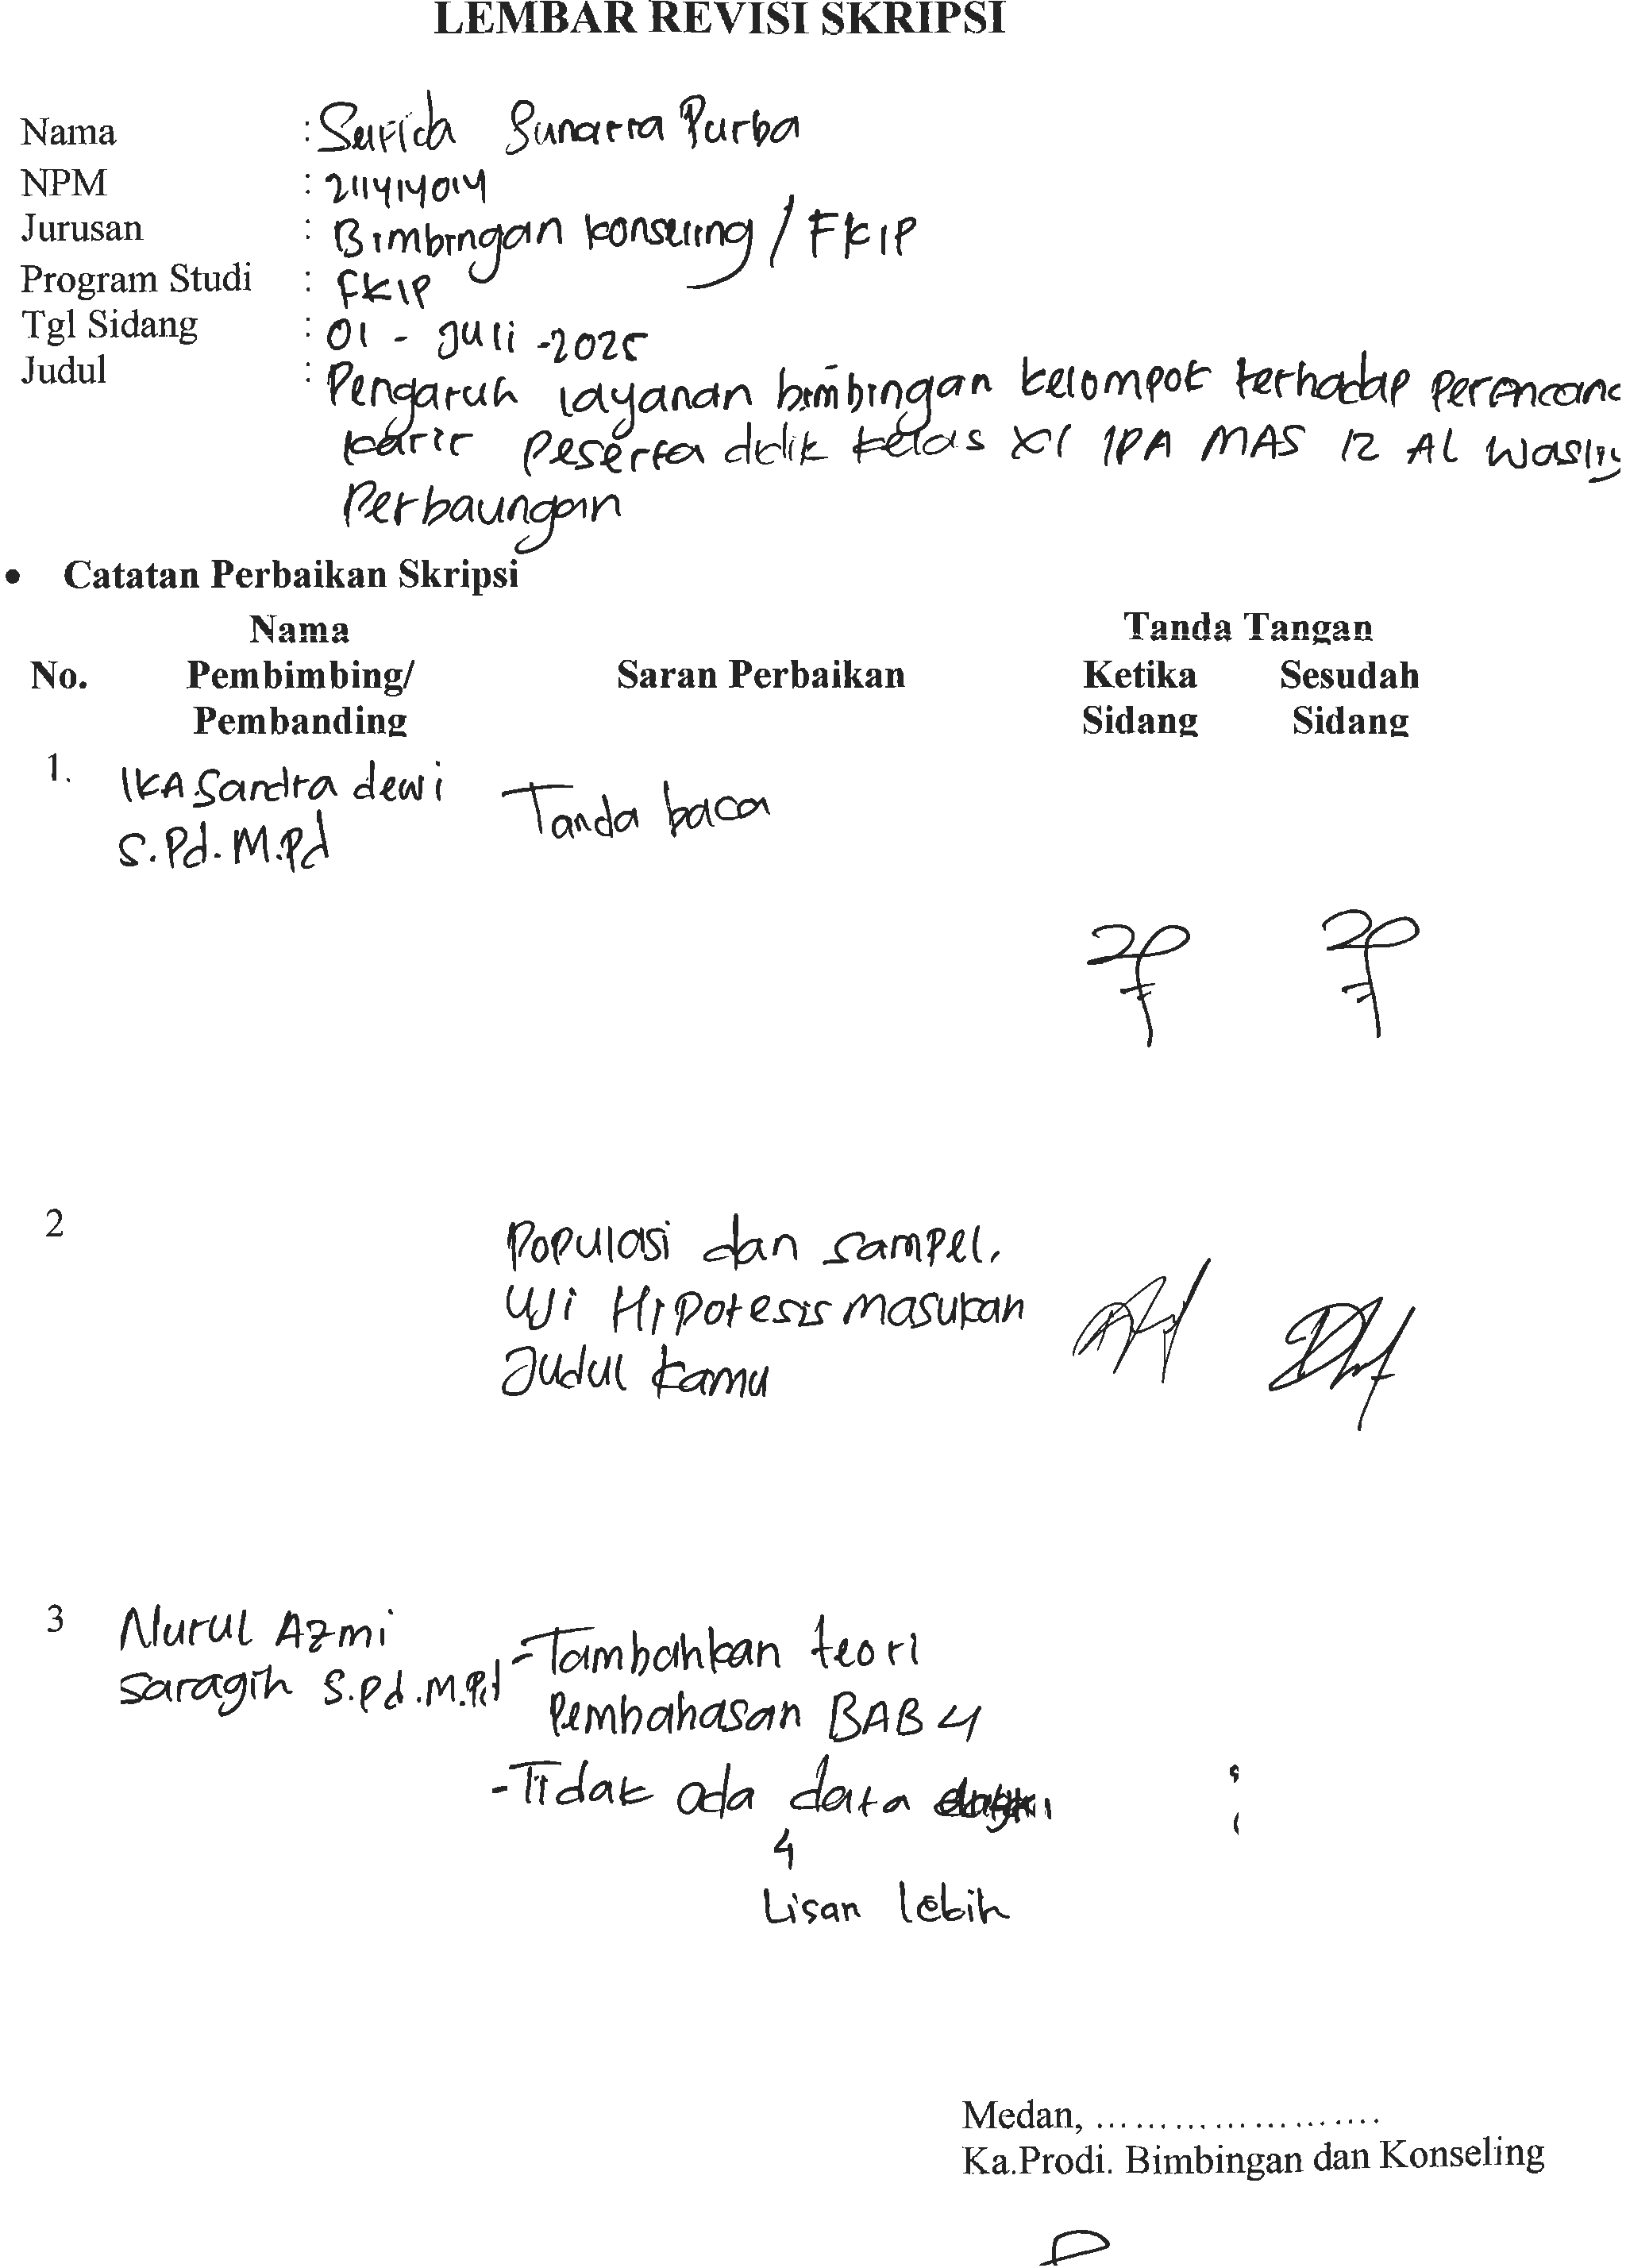 LEMBAR REVISI SKRIPSI
Nama : Surida Sunarra Purba
NPM : 211414014
Jurusan : Bimbingan konseling / FKIP
Program Studi : FKIP
Tgl Sidang : 01 - Juli - 2025
Judul : Pengaruh layanan bimbingan kelompok terhadap Perencana
karir Peserta didik kelas XI IPA MAS 12 AL
Perbaungan
• Catatan Perbaikan Skripsi
Nama Tanda Tangan
No. Pembimbing/ Saran Perbaikan Ketika Sesudah
Pembanding Sidang Sidang
1. IKA Sandra dewi Tanda baca
S.Pd. M.Pd
2 Populasi dan sampel,
Uji Hipotesis masukan
Judul kamu
3 Nurul Azmi
Saragih S.Pd.M.Pd - Tambahkan teori
Pembahasan BAB 4
- Tidak ada data
4
Lisan lebih
Medan, .....................
Ka.Prodi. Bimbingan dan Konseling